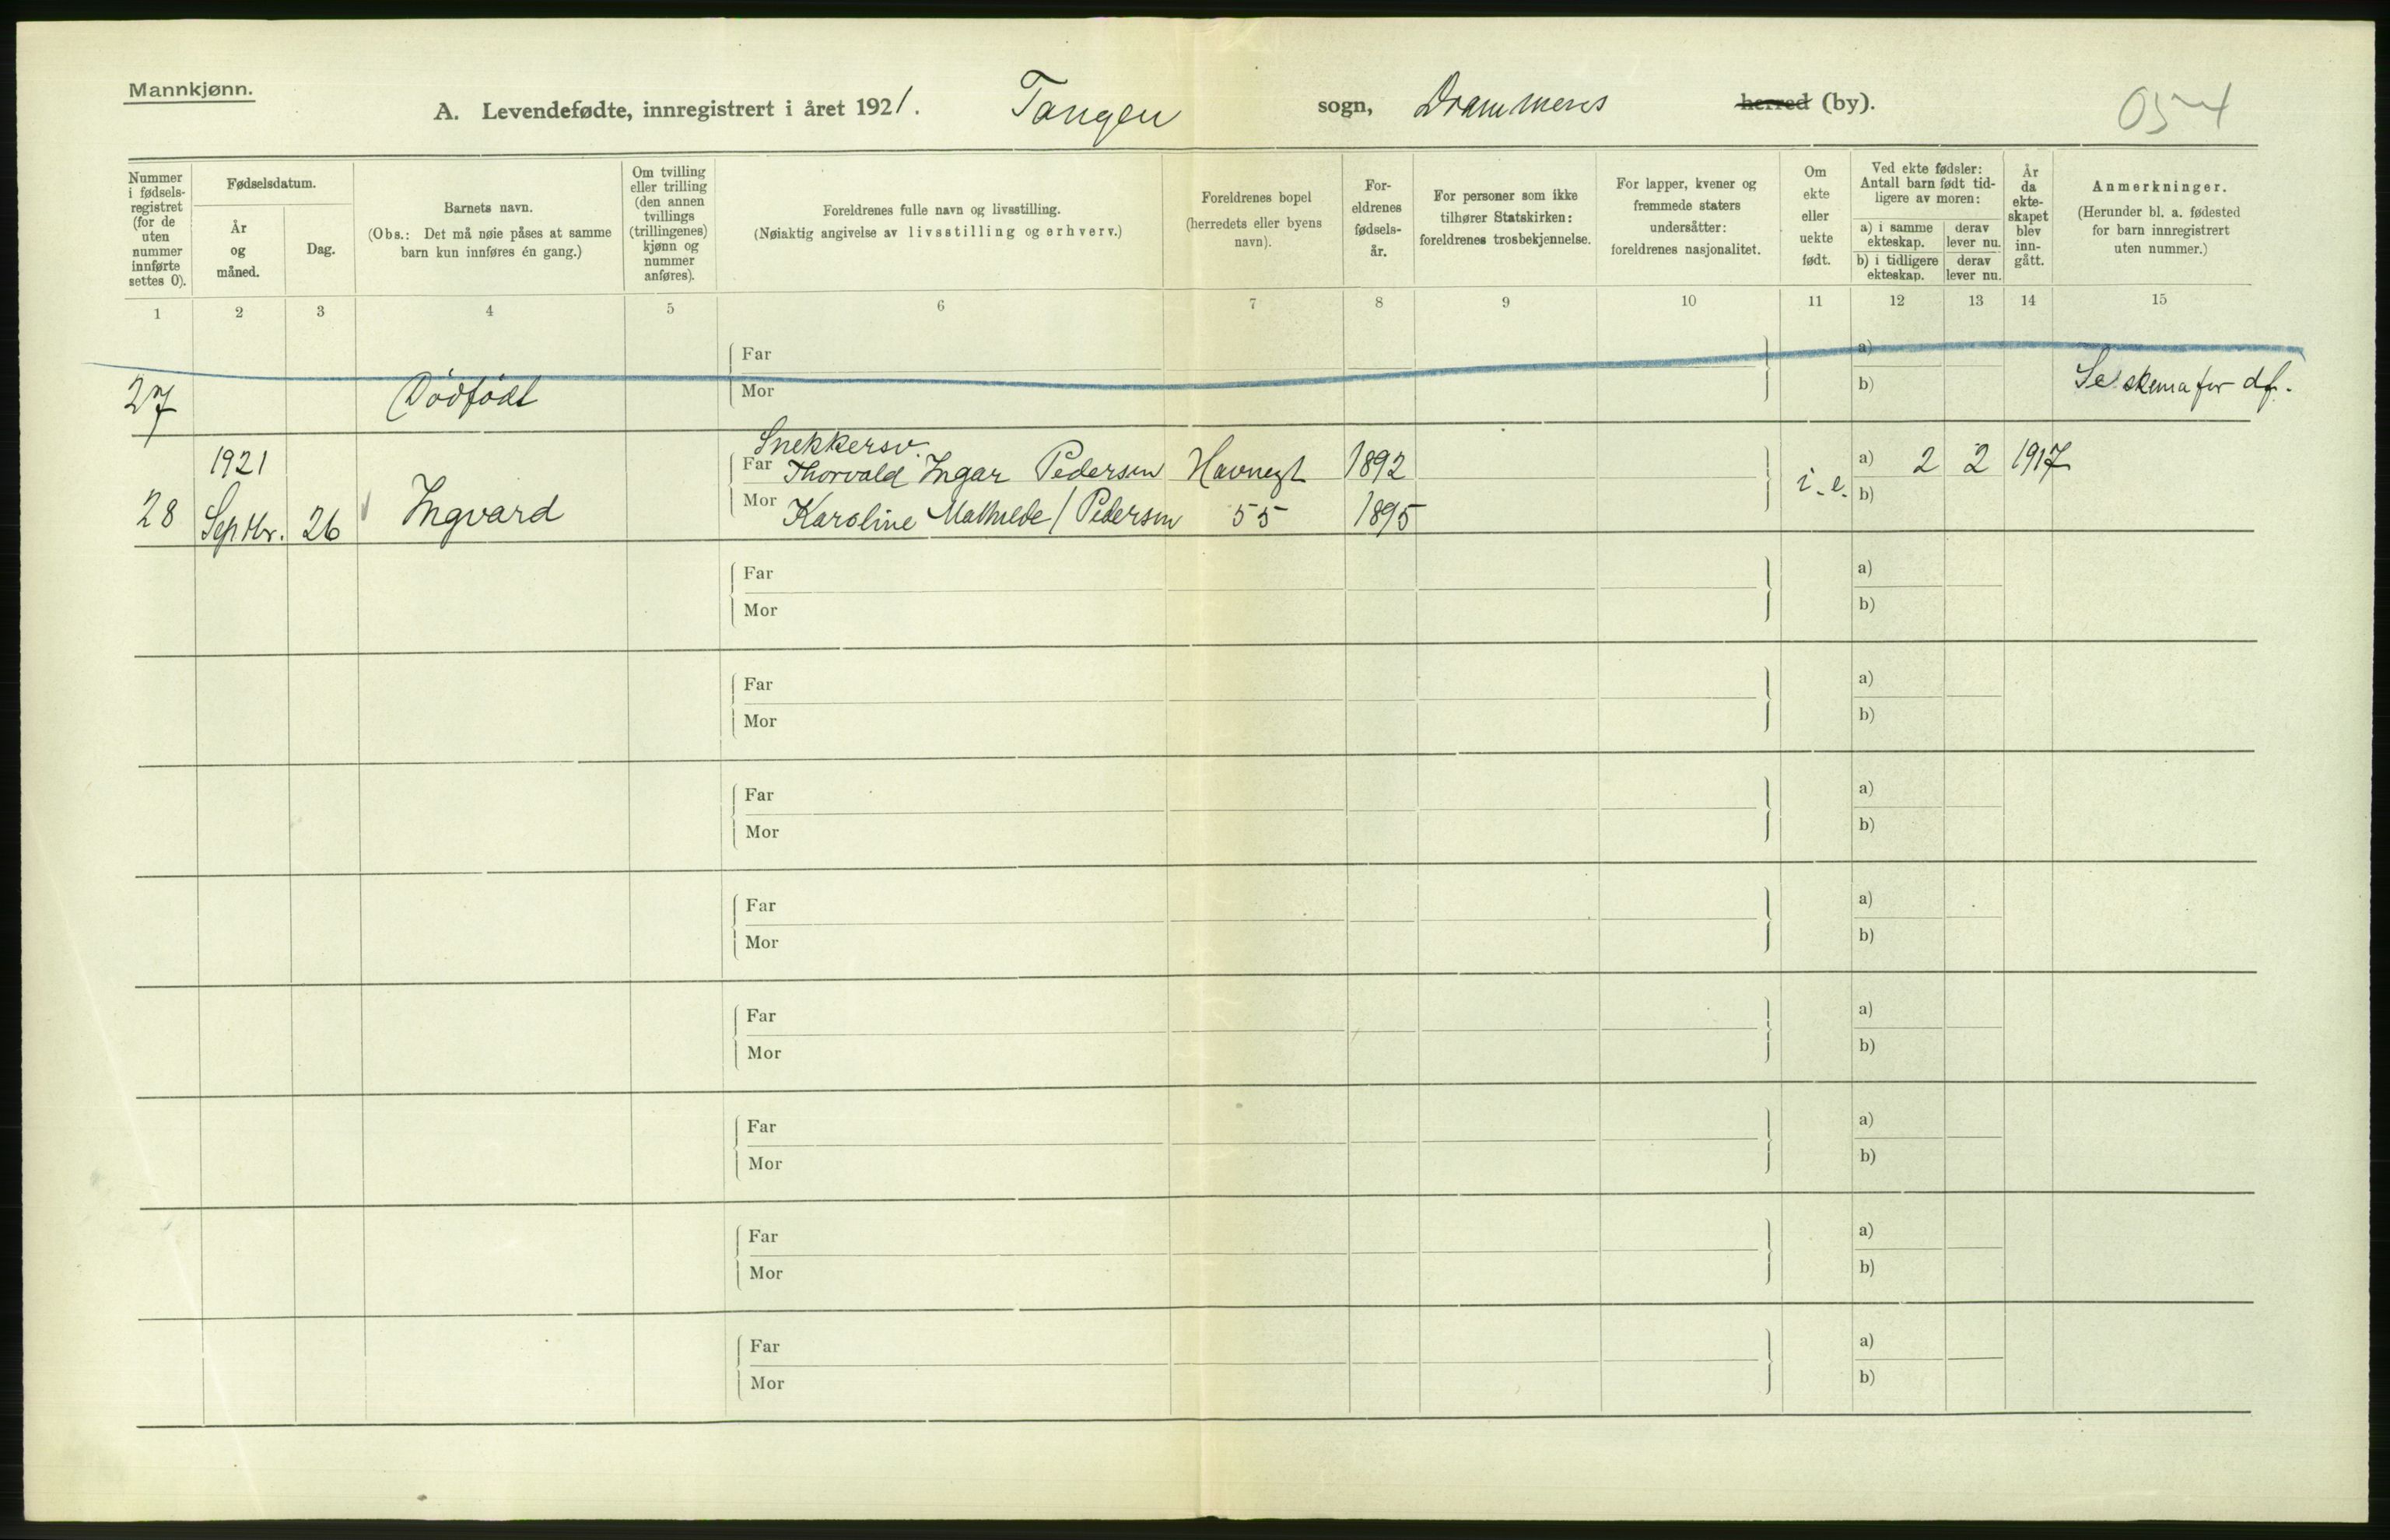 Mannkjønn.
A. Levendefødte, innregistrert i året 1921. Tangen sogn, Drammens herred (by).
Nummer i fødselsregistret (for de uten nummer innførte settes 0).
Fødselsdatum.
År og måned.
Dag.
Barnets navn.
(Obs.: Det må nøie påses at samme barn kun innføres én gang.)
Om tvilling eller trilling (den annen tvillings (trillingenes) kjønn og nummer anføres).
Foreldrenes fulle navn og livsstilling.
(Nøiaktig angivelse av livsstilling og erhverv.)
Foreldrenes bopel
(herredets eller byens navn).
Foreldrenes fødselsår.
For personer som ikke tilhører Statskirken: foreldrenes trosbekjennelse.
For lapper, kvener og fremmede staters undersåtter: foreldrenes nasjonalitet.
Om ekte eller uekte født.
Ved ekte fødsler: Antall barn født tidligere av moren:
a) i samme ekteskap.
derav lever nu.
b) i tidligere ekteskap.
derav lever nu.
År da ekteskapet blev inngått.
Anmerkninger.
(Herunder bl. a. fødested for barn innregistrert uten nummer.)
1 2 3 4 5 6 7 8 9 10 11 12 13 14 15
Far a)
27 Dødfødt Mor b) Se skema for df.
Snekkersv.
1921 Far Thorvald Ingar Pedersen Havnegt 1892 a) 2 2 1917
28 Septbr. 26 Ingvard Mor Karoline Mathilde / Pedersen 55 1895 i. e. b)
Far a)
Mor b)
Far a)
Mor b)
Far a)
Mor b)
Far a)
Mor b)
Far a)
Mor b)
Far a)
Mor b)
Far a)
Mor b)
Far a)
Mor b)